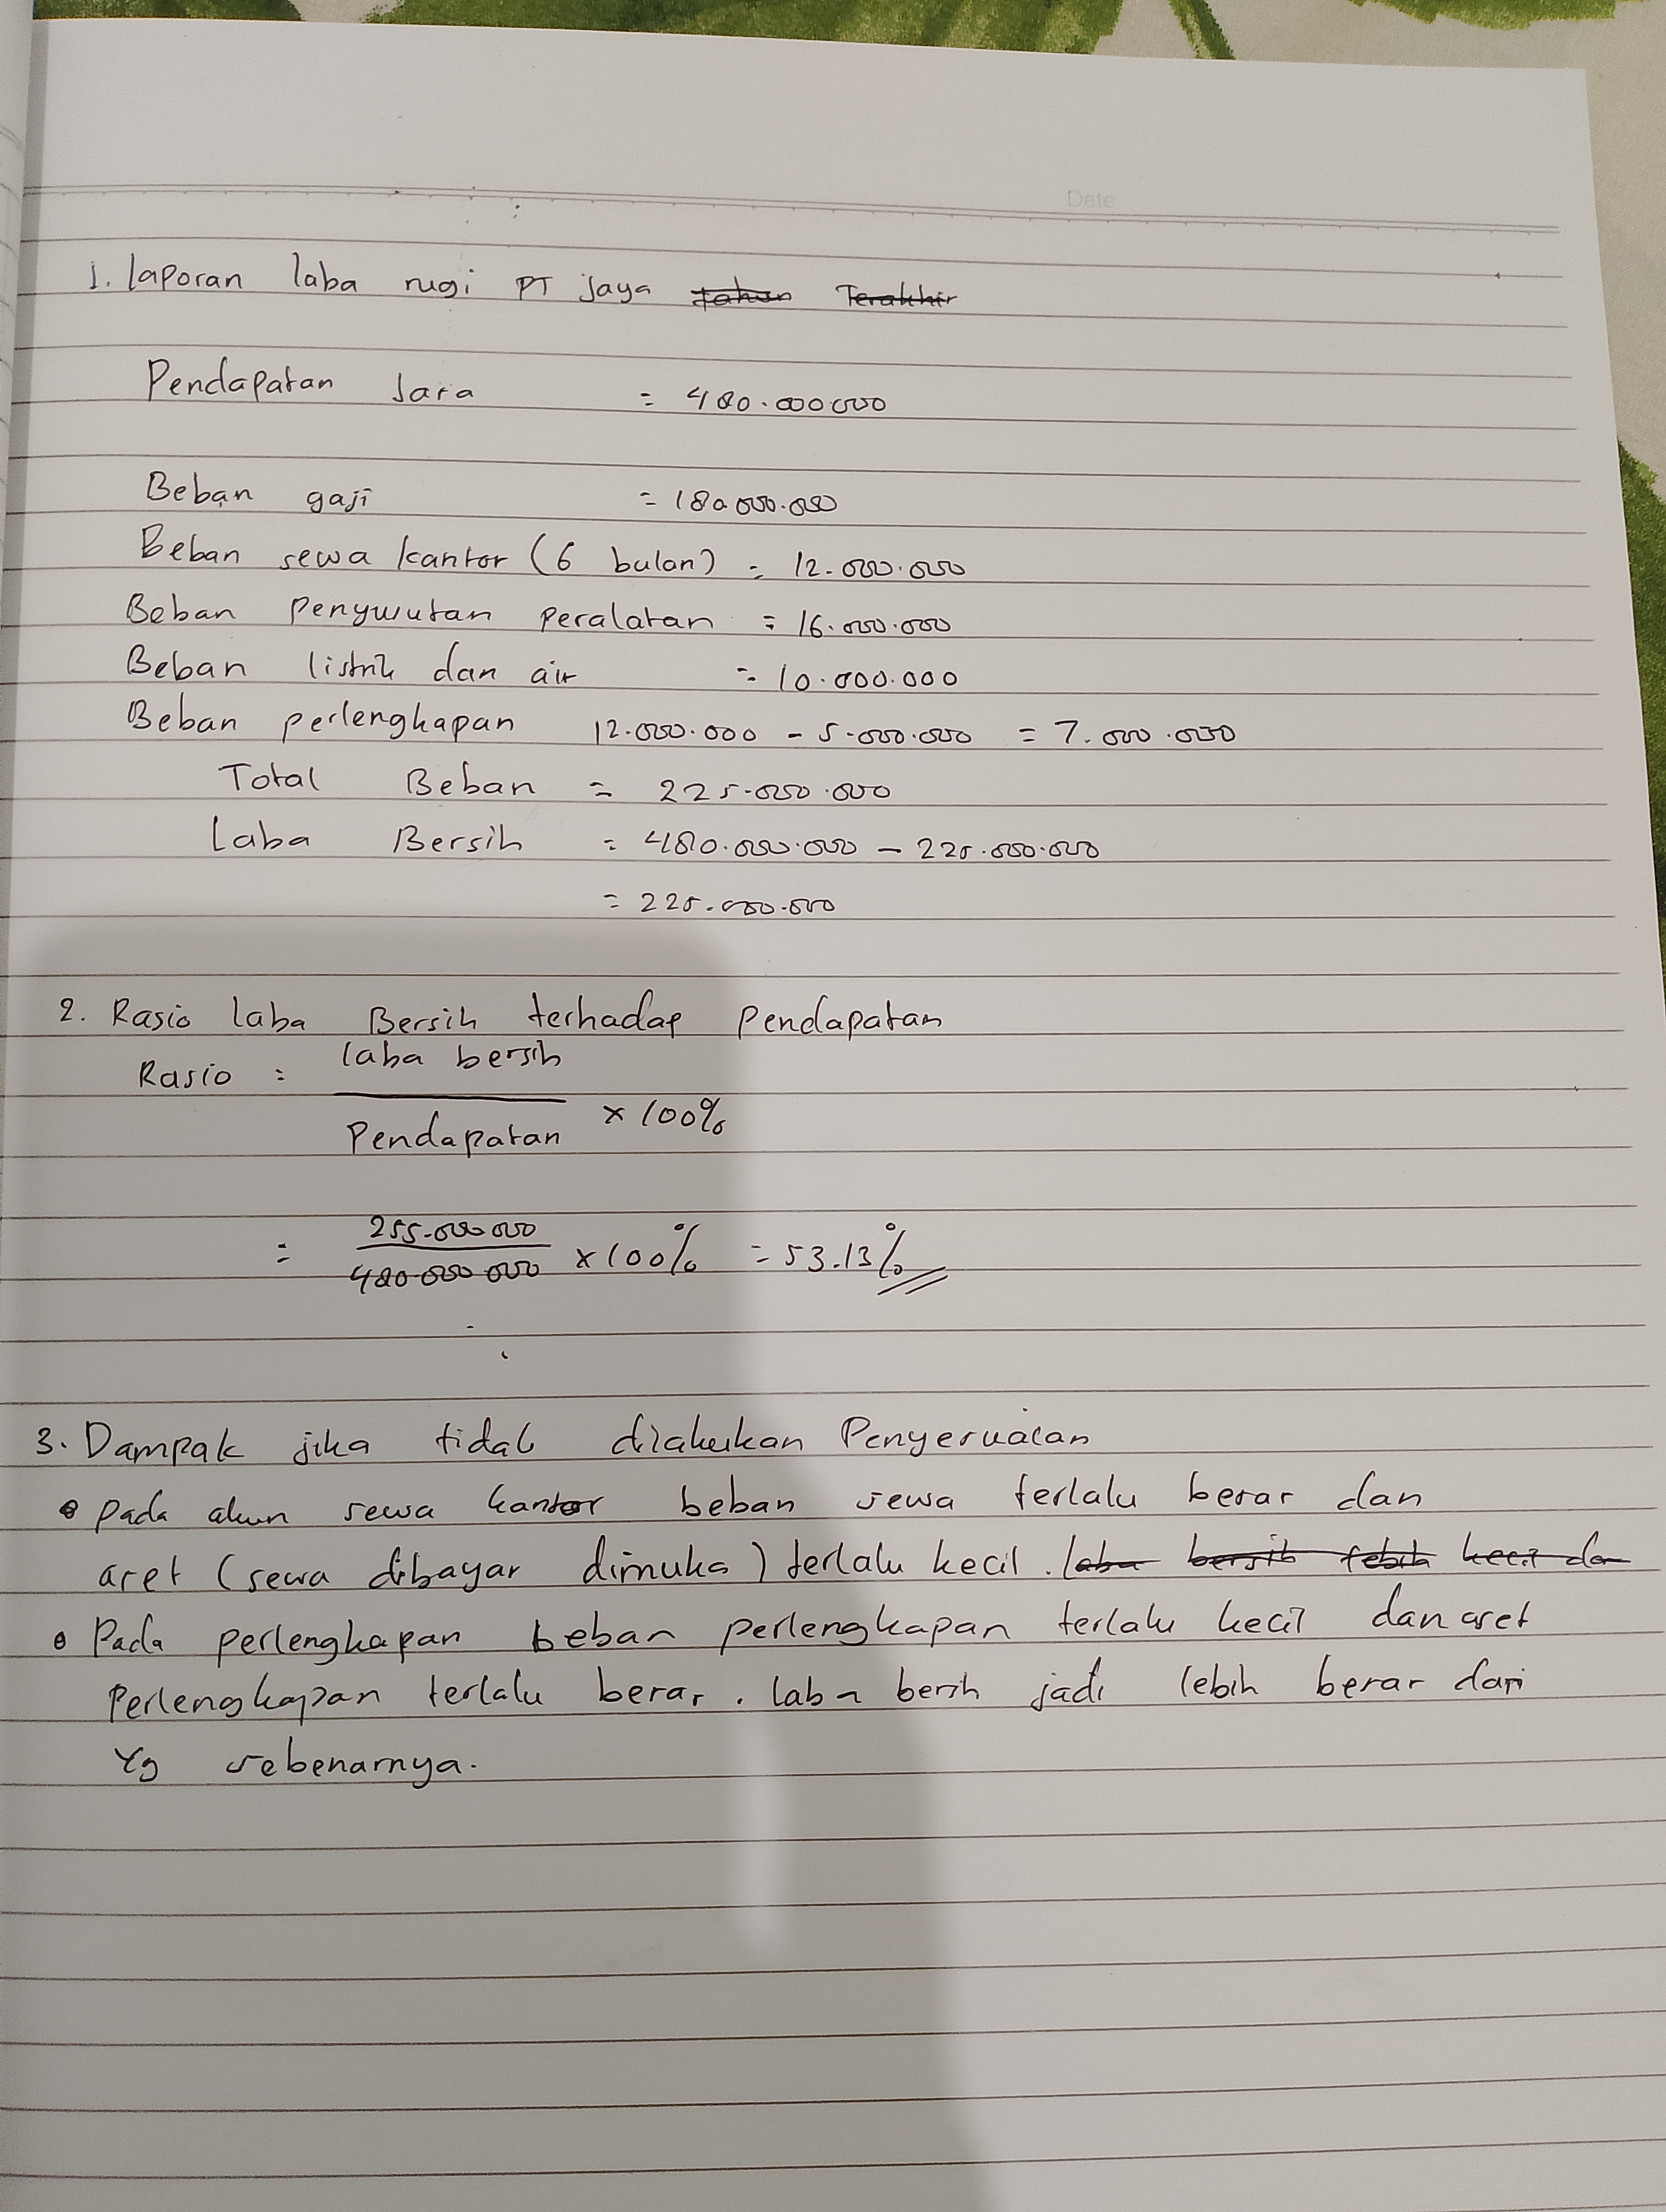 Date
1. laporan laba rugi PT Jaya tahun Terakhir
Pendapatan Jasa = 480.000.000
Beban gaji = 180.000.000
Beban sewa kantor (6 bulan) = 12.000.000
Beban Penyusutan Peralatan = 16.000.000
Beban listrik dan air = 10.000.000
Beban perlengkapan 12.000.000 - 5.000.000 = 7.000.000
Total Beban = 225.000.000
Laba Bersih = 480.000.000 - 225.000.000
= 225.000.000
2. Rasio laba Bersih terhadap Pendapatan
Rasio = laba bersih
Pendapatan × 100%
= 255.000.000
480.000.000 × 100% = 53.13%
3. Dampak jika tidak dilakukan Penyesuaian
• pada akun sewa kantor beban sewa terlalu besar dan
aset (sewa dibayar dimuka) terlalu kecil. laba bersih lebih kecil dan
• Pada perlengkapan beban perlengkapan terlalu kecil dan aset
Perlengkapan terlalu besar. laba bersih jadi lebih besar dari
Yg sebenarnya.